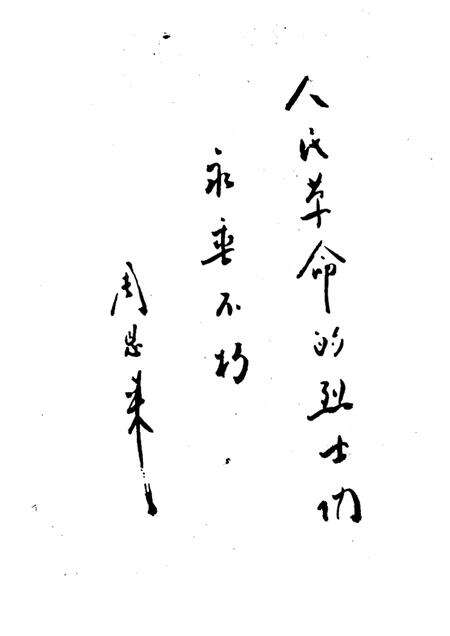 人民革命的烈士们
永垂不朽
周恩来